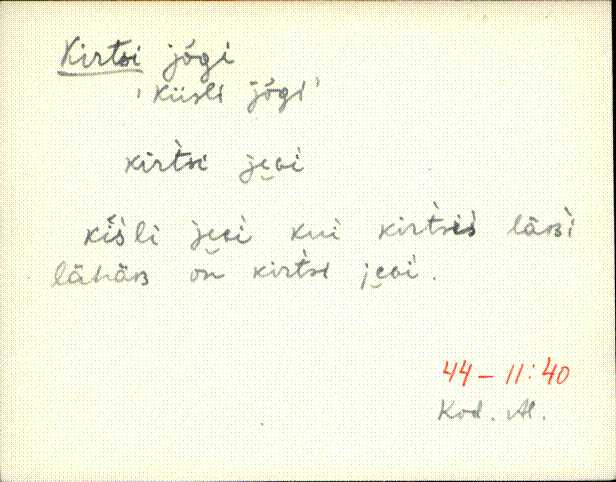 Kirtsi jõgi
'Kiisli jõgi'
kirt̀si je̮ɢi
kiśli je̮ɢi kui kirt̀sis̀ läʙ̀i
lähäʙ on kirt̀si je̮ɢi.
44 – 11:40
Kod. Al.